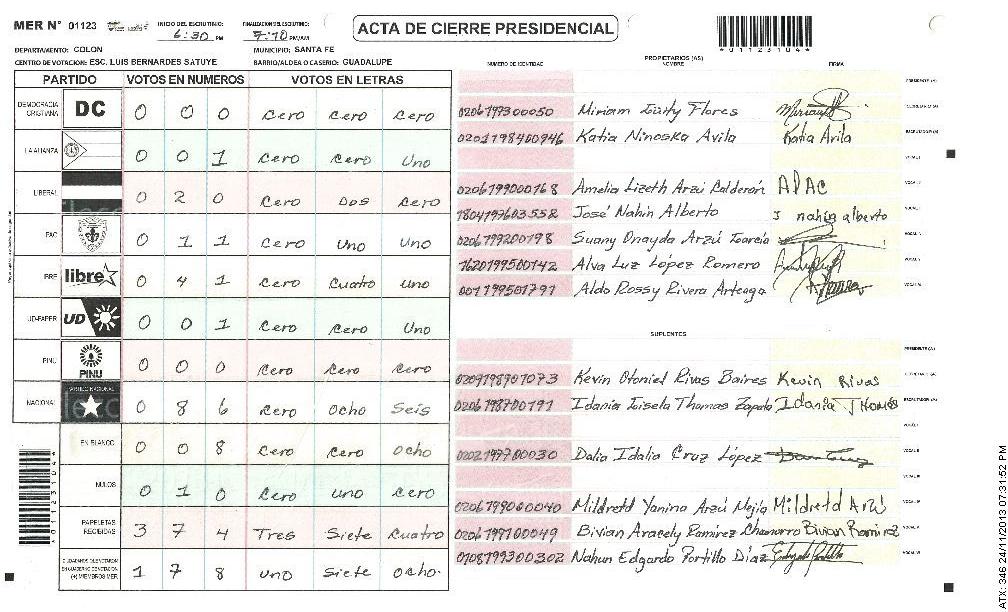 MER N° 01123 INICIO DEL ESCRUTINIO: 6:30 PM FINALIZACION DEL ESCRUTINIO: 7:10 PM/AM ACTA DE CIERRE PRESIDENCIAL
DEPARTAMENTO: COLON MUNICIPIO: SANTA FE
CENTRO DE VOTACION: ESC. LUIS BERNARDES SATUYE BARRIO/ALDEA O CASERIO: GUADALUPE
PARTIDO VOTOS EN NUMEROS VOTOS EN LETRAS
DEMOCRACIA CRISTIANA DC 0 0 0 Cero Cero Cero
LA ALIANZA 0 0 1 Cero Cero Uno
LIBERAL 0 2 0 Cero Dos Cero
PAC 0 1 1 Cero Uno Uno
libre 0 4 1 Cero Cuatro Uno
UD-FAPER UD 0 0 1 Cero Cero Uno
PINU PINU 0 0 0 Cero Cero Cero
NACIONAL PARTIDO NACIONAL 0 8 6 Cero Ocho Seis
EN BLANCO 0 0 8 Cero Cero Ocho
NULOS 0 1 0 Cero Uno Cero
PAPELETAS RECIBIDAS 3 7 4 Tres Siete Cuatro
(+) MIEMBROS MER 1 7 8 Uno Siete Ocho.
PROPIETARIOS (AS)
NUMERO DE IDENTIDAD NOMBRE FIRMA
Miriam Flores
0201198400946 Katia Ninoska Avila Katia Avila
0206199000168 Amelia Lizeth Arzú Calderón ALAC
1804197603558 José Nahin Alberto J nahin alberto
0206199200198 Suany Onayda Arzú García
1620199500142 Alva Luz López Romero
Aldo Rossy Rivera Arteaga
SUPLENTES
0209198901073 Kevin Otoniel Rivas Baires Kevin Rivas
0206198700191 Idania Thomas Zapata Idania Thomas
0202197700030 Dalia Idalia Cruz López
Mildretd Yanina Arzú Mejia Mildretd Arzú
0206199100049 Bivian Aracely Ramirez Chamorro Bivian Ramirez
0108199300302 Nahun Edgardo Portillo Díaz
ATX: 346 24/11/2013 07:31:52 PM